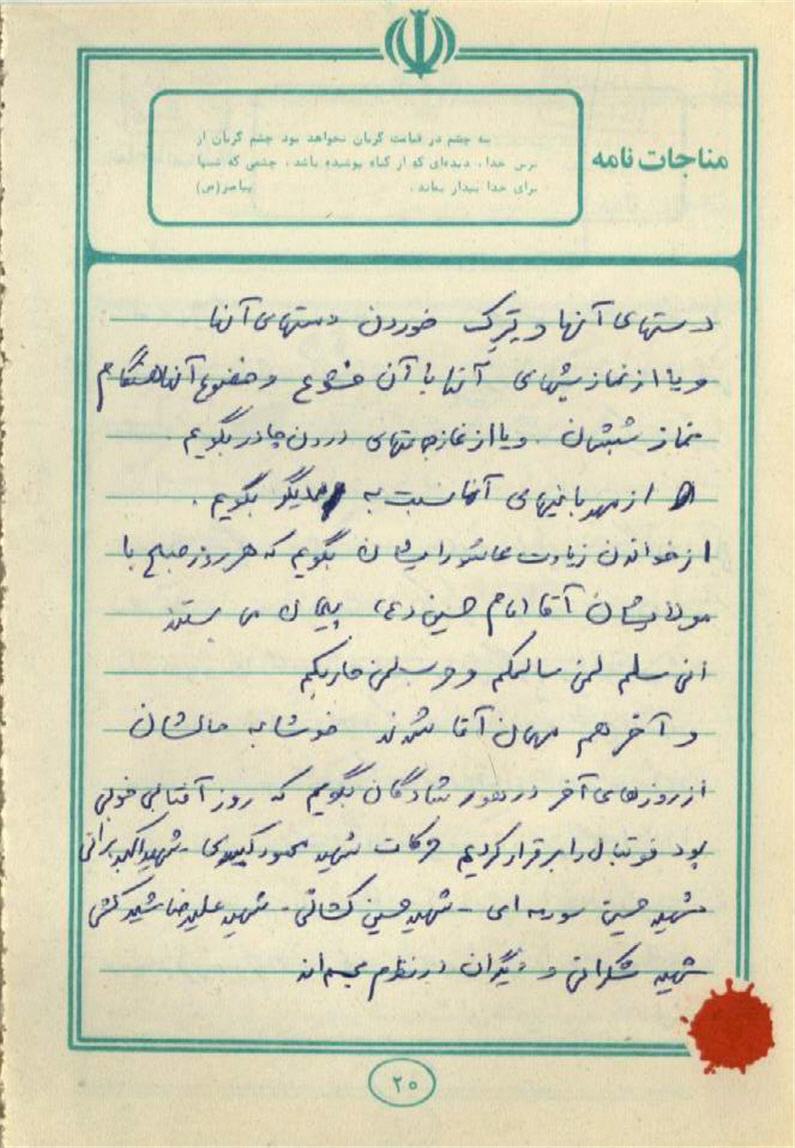 مناجات نامه
سه چشم در قیامت گریان نخواهد بود چشم گریان از
ترس خدا، دیده‌ای که از گناه پوشیده باشد، چشمی که شبها
برای خدا بیدار بماند. پیامبر(ص)
دستهای آنها و ترک خوردن دستهای آنها
و یا از نماز شبهای آنها با آن خشوع و خضوع آنها هنگام
نماز شبشان . و یا از نماز جماعتهای درون چادر بگویم .
از مهربانیهای آنها نسبت به همدیگر بگویم .
از خواندن زیارت عاشورایشان بگویم که هر روز صبح با
مولایشان آقا امام حسین (ع) پیمان می بستند
انی سلم لمن سالمکم و حرب لمن حاربکم
و آخر هم مهمان آقا شدند خوشا به حالشان
از روزهای آخر در بگویم که روز آفتابی خوبی
بود فوتبال را برقرار کردیم حرکات شهید محمود - شهید اکبر
شهید حسین ای - شهید حسین - شهید علیرضا
شهید شکرانی و دیگران در نظرم مجسم اند
۲۰